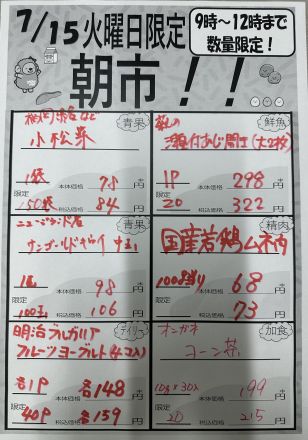 7/15火曜日限定
9時〜12時まで
数量限定！
朝市！！
青果
福岡県など
小松菜
1袋 本体価格 78 円
限定 150袋 税込価格 84 円
鮮魚
味付あじ開き(大2枚)
1P 本体価格 298 円
限定 20 税込価格 322 円
青果
ニュージーランド産
サンゴールドキウイ 中玉
1玉 本体価格 98 円
限定 100玉 税込価格 106 円
精肉
国産若鶏ムネ肉
100g当り 本体価格 68 円
限定 税込価格 73 円
デイリー
明治ブルガリア
フルーツヨーグルト(4コ入)
各1P 本体価格 各148 円
限定 40P 税込価格 各159 円
加食
オンガネ
コーン茶
10g×30入 本体価格 199 円
限定 20 税込価格 215 円